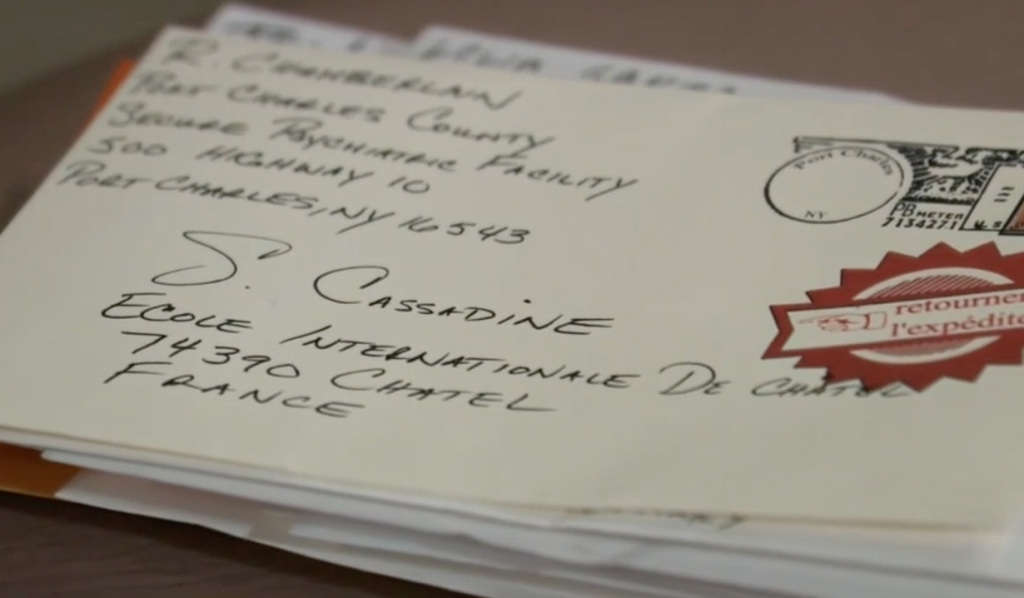 R. Chamberlain
Port Charles County
Secure Psychiatric Facility
500 Highway 10
Port Charles, NY 16543
Port Charles
NY
PB METER
7134271 U.S
S. Cassadine
Ecole Internationale De Chatel
74390 Chatel
France
retourner
l'expédite